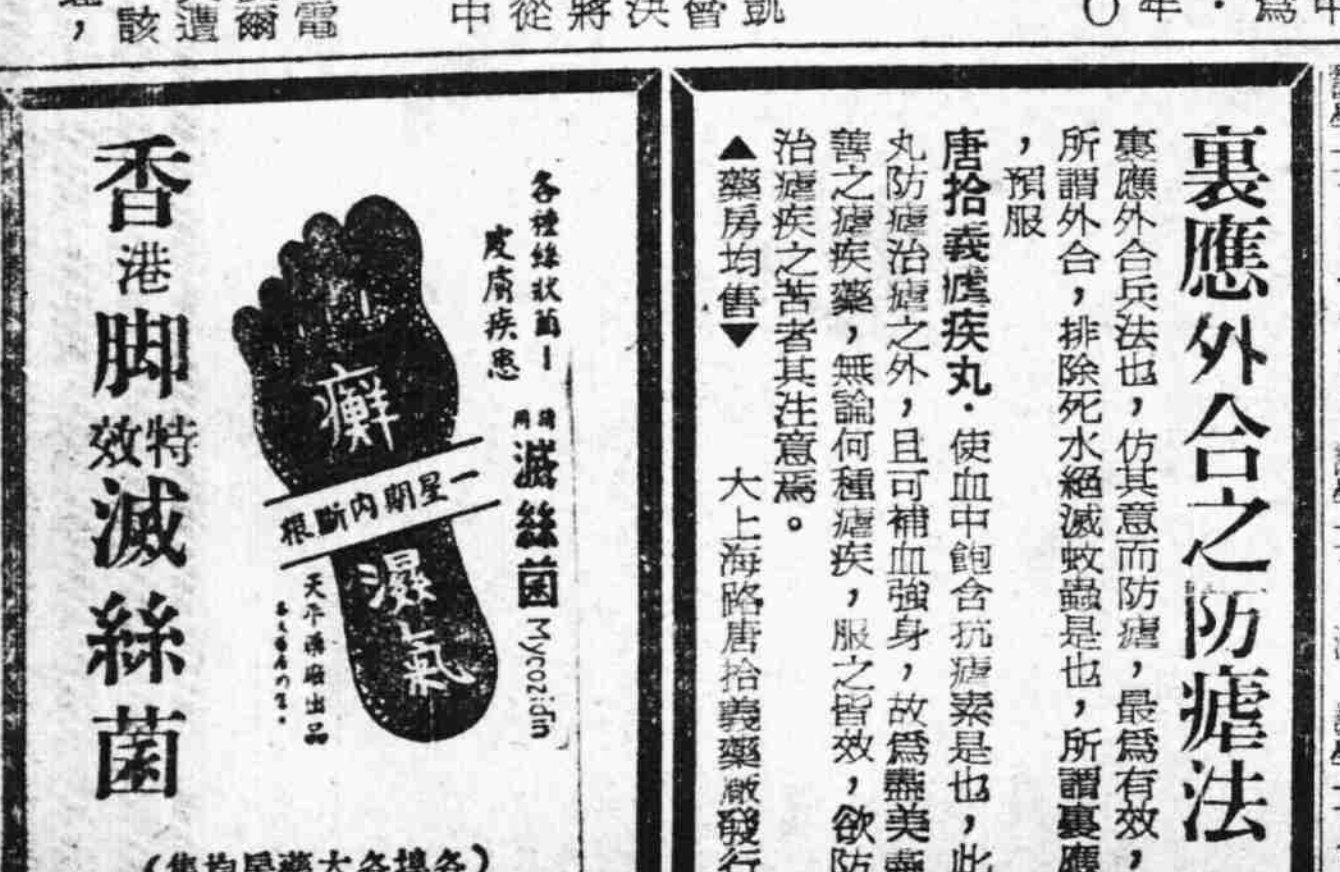 裏應外合之防瘧法
裏應外合兵法也，仿其意而防瘧，最爲有效，
所謂外合，排除死水絕滅蚊蟲是也，所謂裏應
，預服
唐拾義瘧疾丸．使血中飽含抗瘧素是也，此
丸防瘧治瘧之外，且可補血強身，故爲盡美盡
善之瘧疾藥，無論何種瘧疾，服之皆效，欲防
治瘧疾之苦者其注意焉。
▲藥房均售▼　大上海路唐拾義藥廠發行
各種絲狀菌－
皮膚疾患
請用
滅絲菌Mycozidin
癬
一星期內斷根
濕氣
天平藥廠出品
香港脚特效滅絲菌
(各埠各大藥房均售)
凱
曾
決
將
從
中
電
爾
遭
該